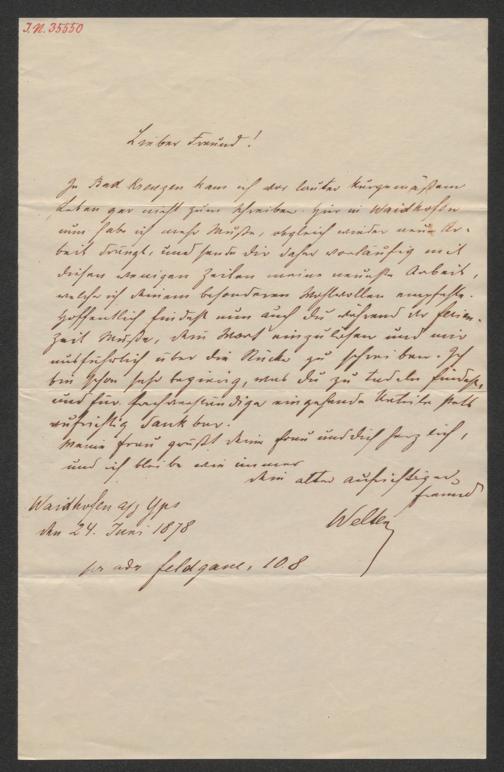 I.N. 35550
Lieber Freund!
In Bad Kreuzen kam ich vor lauter kurgemäßem
Leben gar nicht zum Schreiben. Hier in Waidhofen
nun habe ich mehr Muße, obgleich wieder neue Ar-
beit drängt, und sende Dir daher vorläufig mit
diesen wenigen Zeilen meine neueste Arbeit,
welche ich Deinem besonderen Wohlwollen empfehle.
Hoffentlich findest nun auch Du während der Ferien-
zeit Muße, Dein Wort einzulösen und mir
ausführlich über die Stücke zu schreiben. Ich
bin schon sehr begierig, was Du zu tadeln findest,
und für fachverständige eingehende Urteile stets
aufrichtig dankbar.
Meine Frau grüßt Deine Frau und Dich herzlich,
und ich bleibe wie immer
Dein alter aufrichtiger
Freund
Waidhofen a/d Yps
den 24. Juni 1878
Feldgasse, 108